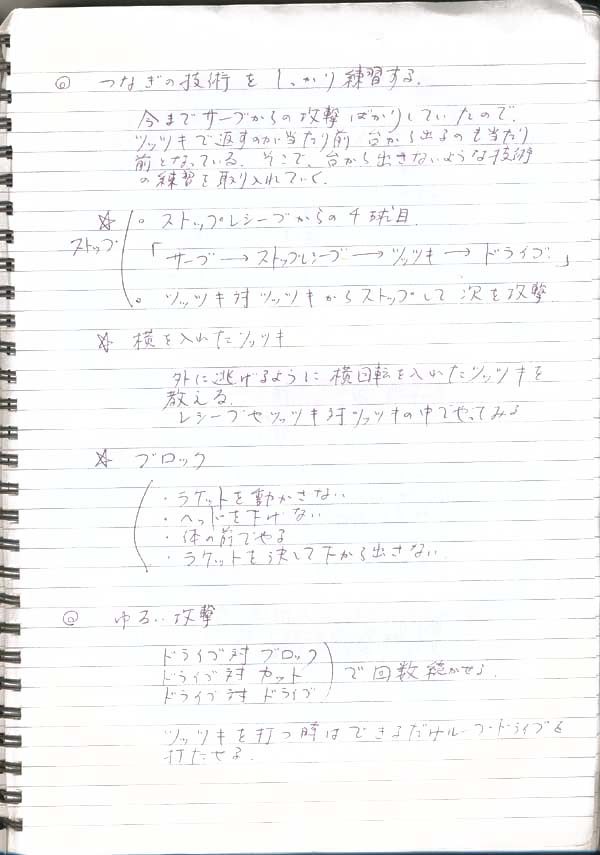 ◎ つなぎの技術をしっかり練習する.
今までサーブからの攻撃ばかりしていたので、
ツッツキで返すのが当たり前 台から出るのも当たり
前となっている. そこで、台から出さないような技術
の練習を取り入れていく.
☆ 。ストップレシーブからの4球目
ストップ 「サーブ→ストップレシーブ→ツッツキ→ドライブ.」
。ツッツキ対ツッツキからストップして次を攻撃
☆ 横を入れたツッツキ
外に逃げるように横回転を入れたツッツキを
教える.
レシーブやツッツキ対ツッツキの中でやってみる
☆ ブロック
・ラケットを動かさない
・ヘッドを下げない
・体の前でやる
・ラケットを決して下から出さない
◎ ゆるい攻撃
ドライブ対ブロック
ドライブ対カット で回数続かせる.
ドライブ対ドライブ
ツッツキを打つ時はできるだけループドライブを
打たせる.